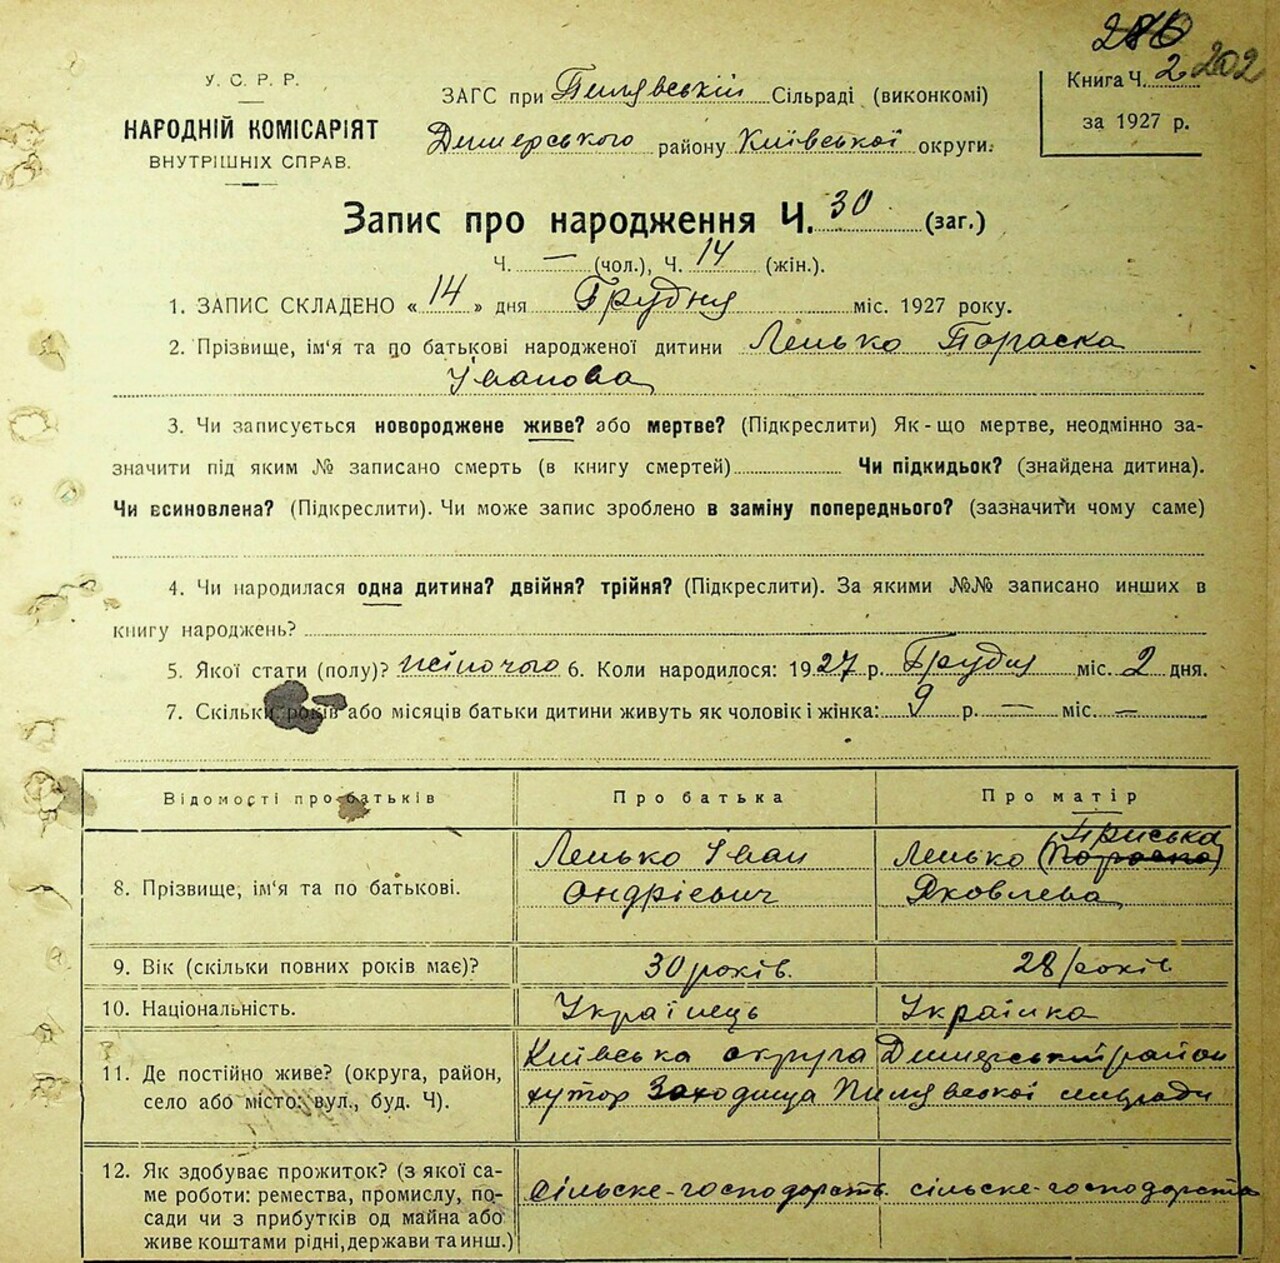 286 202
У. С. Р. Р.
НАРОДНІЙ КОМІСАРІЯТ
ВНУТРІШНІХ СПРАВ.
ЗАГС при Пилявській Сільраді (виконкомі)
Димерського району Київської округи.
Книга Ч. 2
за 1927 р.
Запис про народження Ч. 30 (заг.)
Ч. — (чол.), Ч. 14 (жін.).
1. ЗАПИС СКЛАДЕНО « 14 » дня Грудня міс. 1927 року.
2. Прізвище, ім'я та по батькові народженої дитини Ленько Параска
Іванова
3. Чи записується новороджене живе? або мертве? (Підкреслити) Як-що мертве, неодмінно за-
значити під яким № записано смерть (в книгу смертей) Чи підкидьок? (знайдена дитина).
Чи всиновлена? (Підкреслити). Чи може запис зроблено в заміну попереднього? (зазначити чому саме)
4. Чи народилася одна дитина? двійня? трійня? (Підкреслити). За якими №№ записано инших в
книгу народжень?
5. Якої стати (полу)? жіночого 6. Коли народилося: 1927 р. Грудня міс. 2 дня.
7. Скільки років або місяців батьки дитини живуть як чоловік і жінка: 9 р. — міс. —
Відомості про батьків Про батька Про матір
8. Прізвище, ім'я та по батькові. Ленько Іван Ленько (Параска) Приська
Андрієвич Яковлева
9. Вік (скільки повних років має)? 30 років. 28 років
10. Національність. Українець Українка
11. Де постійно живе? (округа, район, Київська округа Димерський район
село або місто: вул., буд. Ч). хутор Заходища Пилявської сільради
12. Як здобуває прожиток? (з якої са-
ме роботи: ремества, промислу, по- сільске-господарств. сільске-господарства
сади чи з прибутків од майна або
живе коштами рідні, держави та инш.)